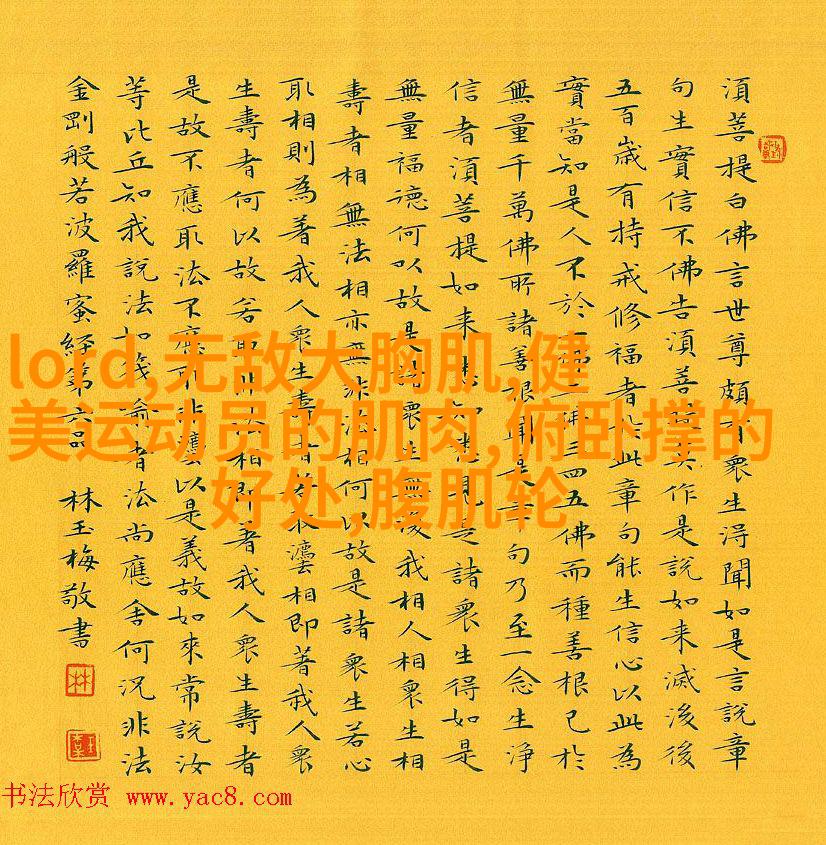 須菩提白佛言世尊頗有衆生得聞如是言說章
句生實信不佛告須菩提莫作是說如来滅後後
五百歲有持戒修福者於此章句能生信心以此為
實當知是人不於一佛二佛三四五佛而種善根已於
無量千萬佛所諸善根聞是章句乃至一念生淨
信者須菩提如来悉知悉見是諸衆生得如是
無量福德何以故是諸衆生無復我相人相衆生相
壽者相無法相亦無非法相何以故是諸衆生若心
取相則為著我人衆生壽者若取灋相即著我人衆
生壽者何以故若取非法相即著我人衆生壽者
是故不應取法不應取非灋以是義故如來常說汝
等比丘知我說法如筏喻者法尚應舍何況非法
金剛般若波羅蜜經第六品 林玉梅敬書
林
lord,无敌大胸肌,健
美运动员的肌肉,俯卧撑的
好处,腹肌轮
书法欣赏 www.yac8.com